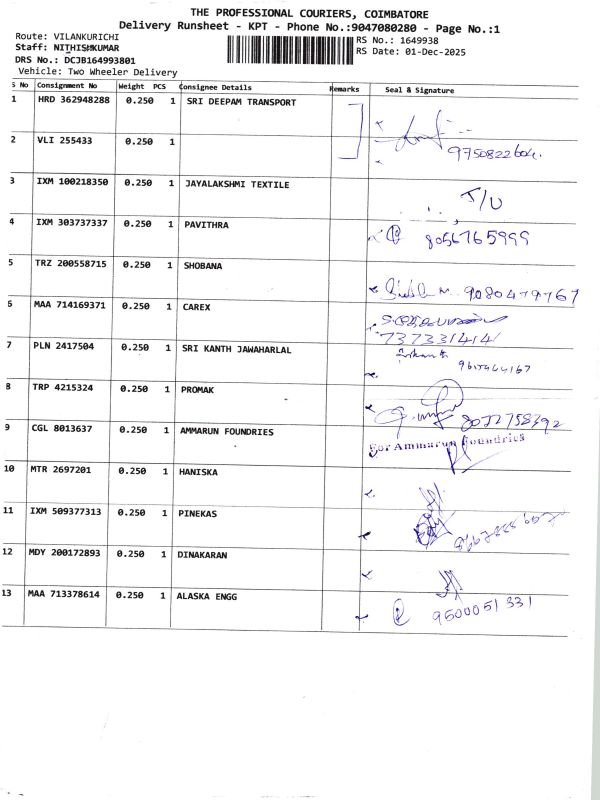 THE PROFESSIONAL COURIERS, COIMBATORE
Delivery Runsheet - KPT - Phone No.:9047080280 - Page No.:1
Route: VILANKURICHI
RS No.: 1649938
Staff: NITHISHKUMAR
RS Date: 01-Dec-2025
DRS No.: DCJB164993801
Vehicle: Two Wheeler Delivery
S No Consignment No Weight PCS Consignee Details Remarks Seal & Signature
1 HRD 362948288 0.250 1 SRI DEEPAM TRANSPORT
2 VLI 255433 0.250 1
9750822604.
3 IXM 100218350 0.250 1 JAYALAKSHMI TEXTILE
4 IXM 303737337 0.250 1 PAVITHRA 8056765999
5 TRZ 200558715 0.250 1 SHOBANA
9080479767
6 MAA 714169371 0.250 1 CAREX
7373314141
7 PLN 2417504 0.250 1 SRI KANTH JAWAHARLAL
8 TRP 4215324 0.250 1 PROMAK
9 CGL 8013637 0.250 1 AMMARUN FOUNDRIES
For Ammarun Foundries
10 MTR 2697201 0.250 1 HANISKA
11 IXM 509377313 0.250 1 PINEKAS
12 MDY 200172893 0.250 1 DINAKARAN
13 MAA 713378614 0.250 1 ALASKA ENGG
9600051331